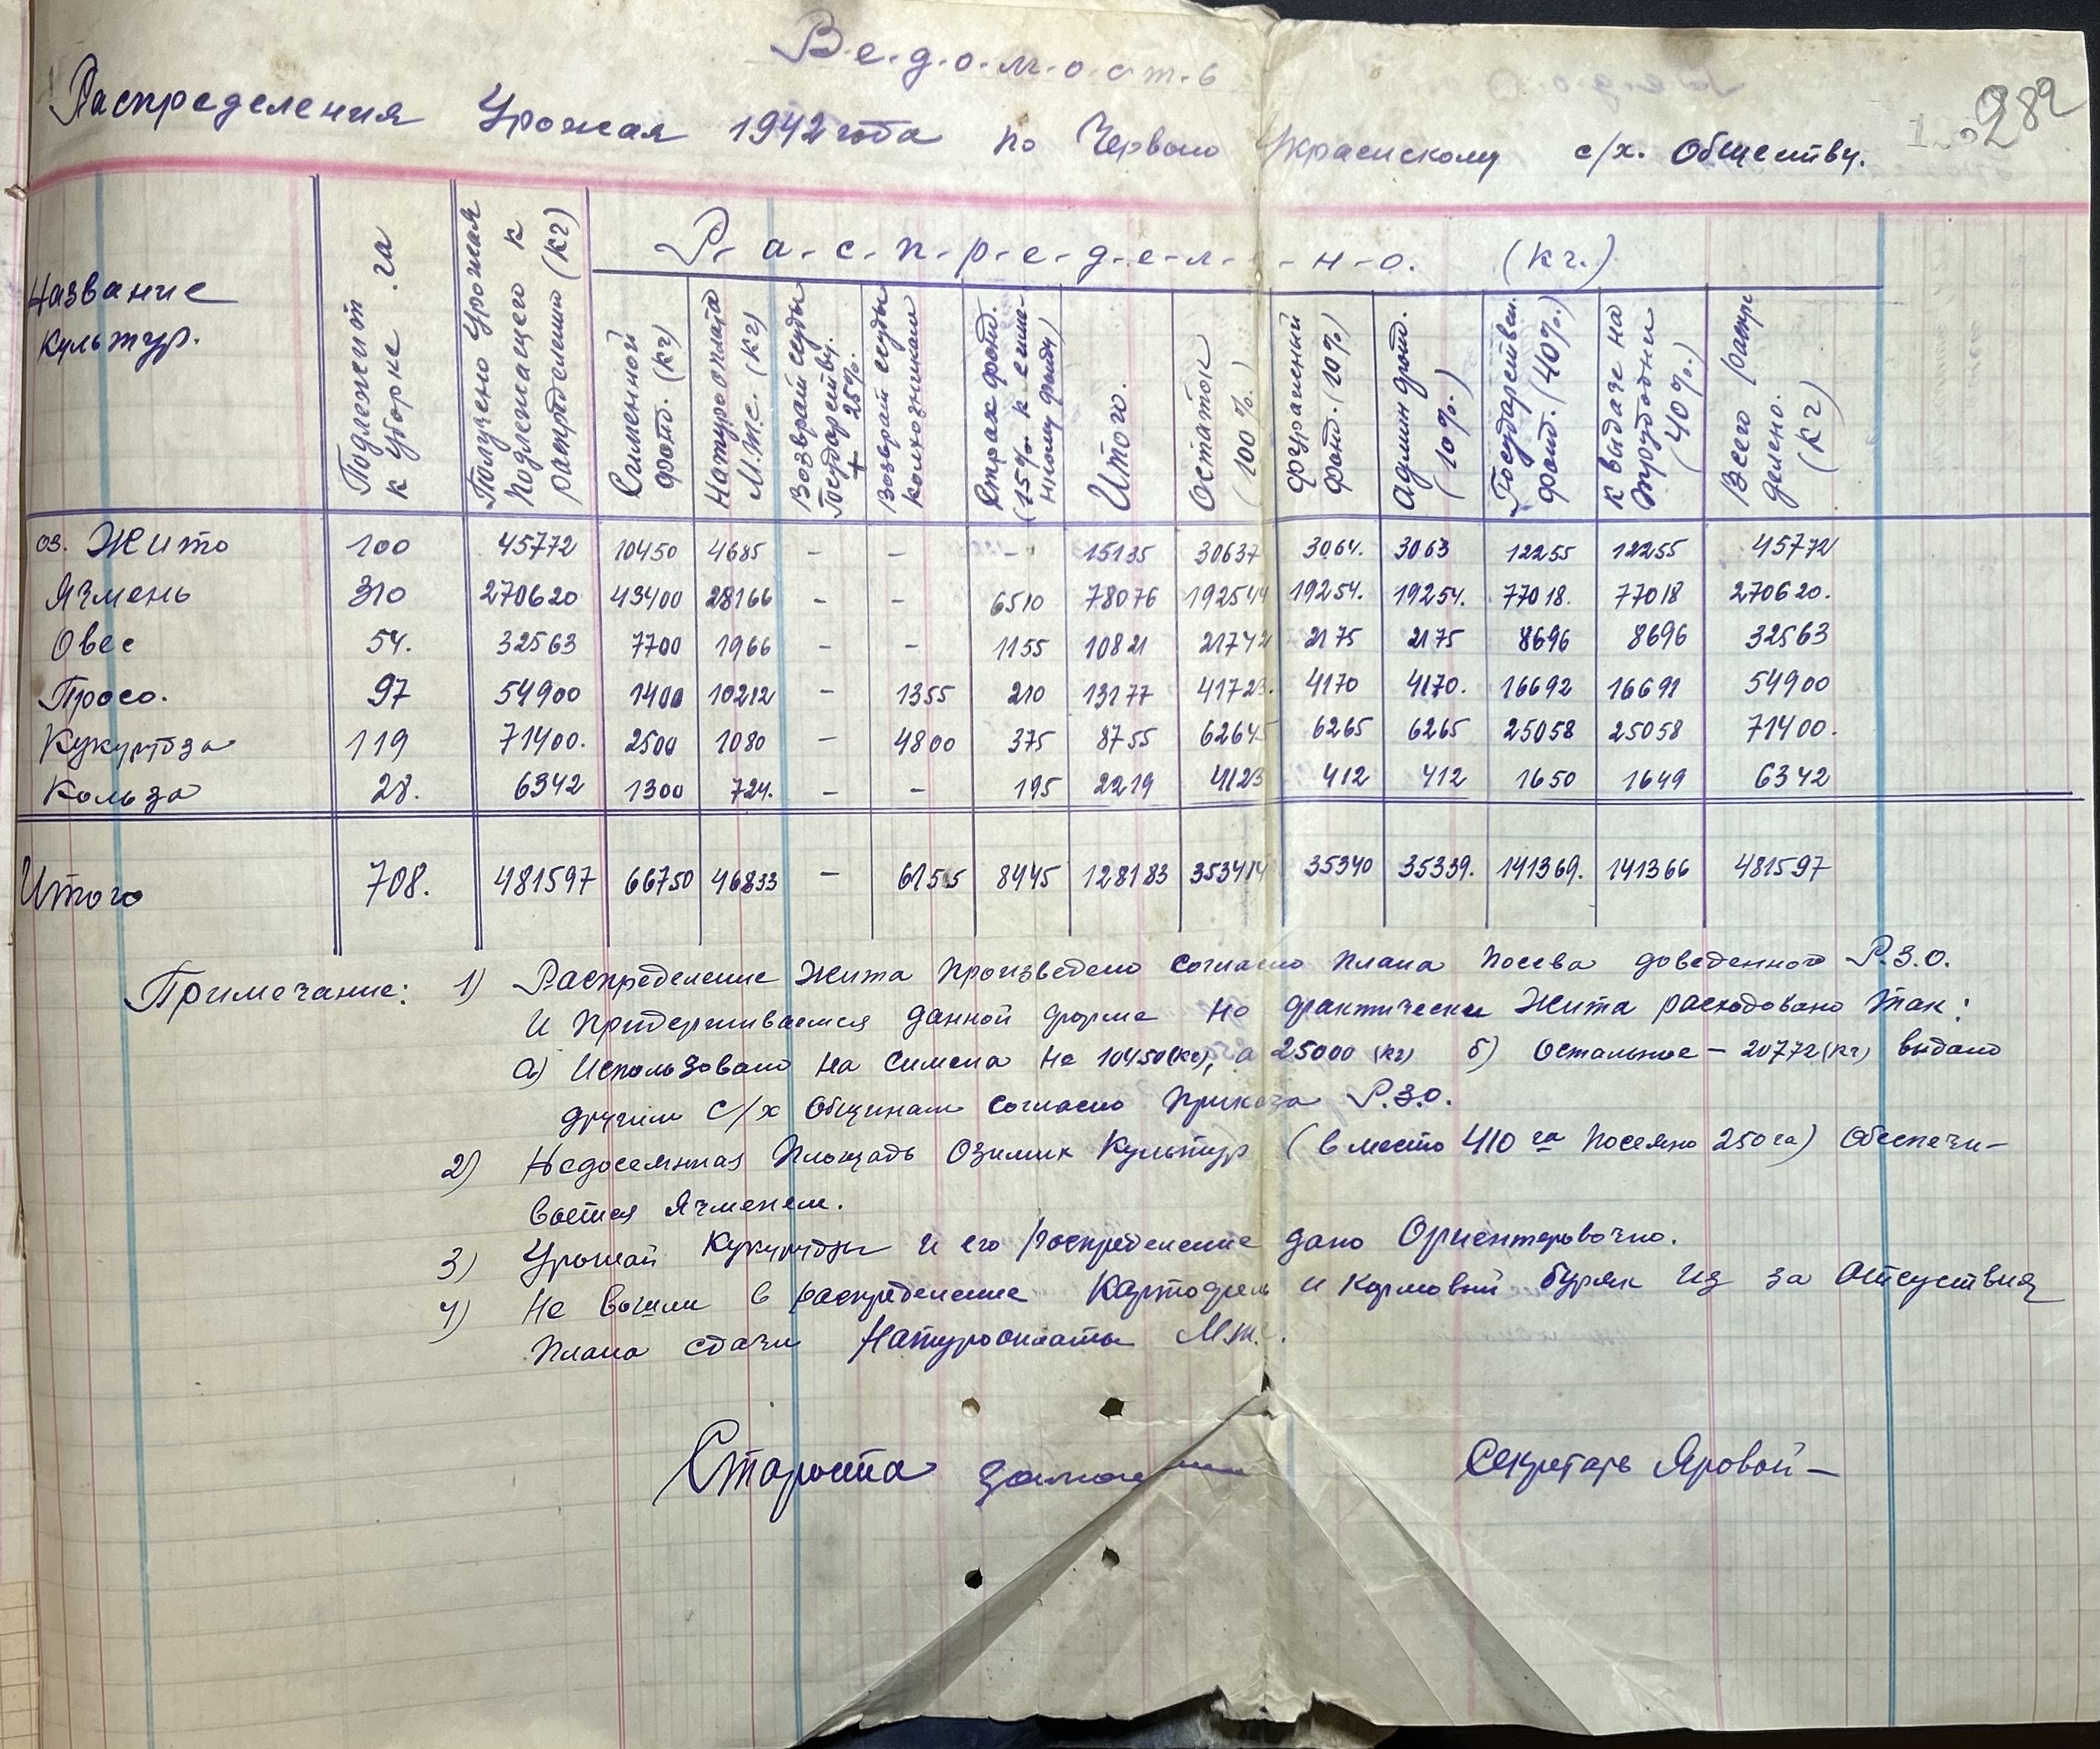 В.е.д.о.м.о.с.т.ь
282
Распределения Урожая 1942 года по Червоно Украинскому с/х. Обществу.
Название Культур.
Подлежит к Уборке га
Получено Урожая подлежащего к распределению (кг)
Р-а-с-п-р-е-д-е-л-е-н-о. (кг.)
Сименной фонд. (кг)
Натуроплата М.Т.С. (кг)
Возврат ссуды Государству. + 25%.
Возврат ссуды колхозникам
Страх фонд. (15% к симе-нному фонду)
Итого.
Остаток (100%.)
Фуражный фонд. (10%)
Админ фонд. (10%.)
Государствен. фонд. (40%.)
к выдаче на трудодни (40%.)
Всего распре делено. (кг)
оз. Жито 100 45772 10450 4685 - - - 15135 30637 3064. 3063 12255 12255 45772
Ячмень 310 270620 43400 28166 - - 6510 78076 192544 19254. 19254. 77018. 77018 270620.
Овес 54. 32563 7700 1966 - - 1155 10821 21742 2175 2175 8696 8696 32563
Просо. 97 54900 1400 10212 - 1355 210 13177 41723. 4170 4170. 16692 16691 54900
Кукуруза 119 71400. 2500 1080 - 4800 375 8755 62645 6265 6265 25058 25058 71400.
Кольза 28. 6342 1300 724. - - 195 2219 4123 412 412 1650 1649 6342
Итого 708. 481597 66750 46833 - 6155 8445 128183 353414 35340 35339. 141369. 141366 481597
Примечание: 1) Распределение Жита Произведено согласно плана посева доведенного Р.З.О.
и придерживаемся данной форме но фактически Жита расходовано так:
а) Использовано на симена не 10450(кг), а 25000 (кг) б) Остальное – 20772(кг) выдано
другим с/х Общинам согласно приказа Р.З.О.
2) Недосеянная Площадь Озимих Культур (вместо 410 га посеяно 250 га) Обеспечи-
вается Ячменем.
3) Урожай Кукурузы и его распределение дано Ориентировочно.
4) Не вошли в распределение Картофель и Кормовый буряк из за отсуствия
плана сдачи Натуроплаты М.т.с.
Староста
Секретарь Яровой –